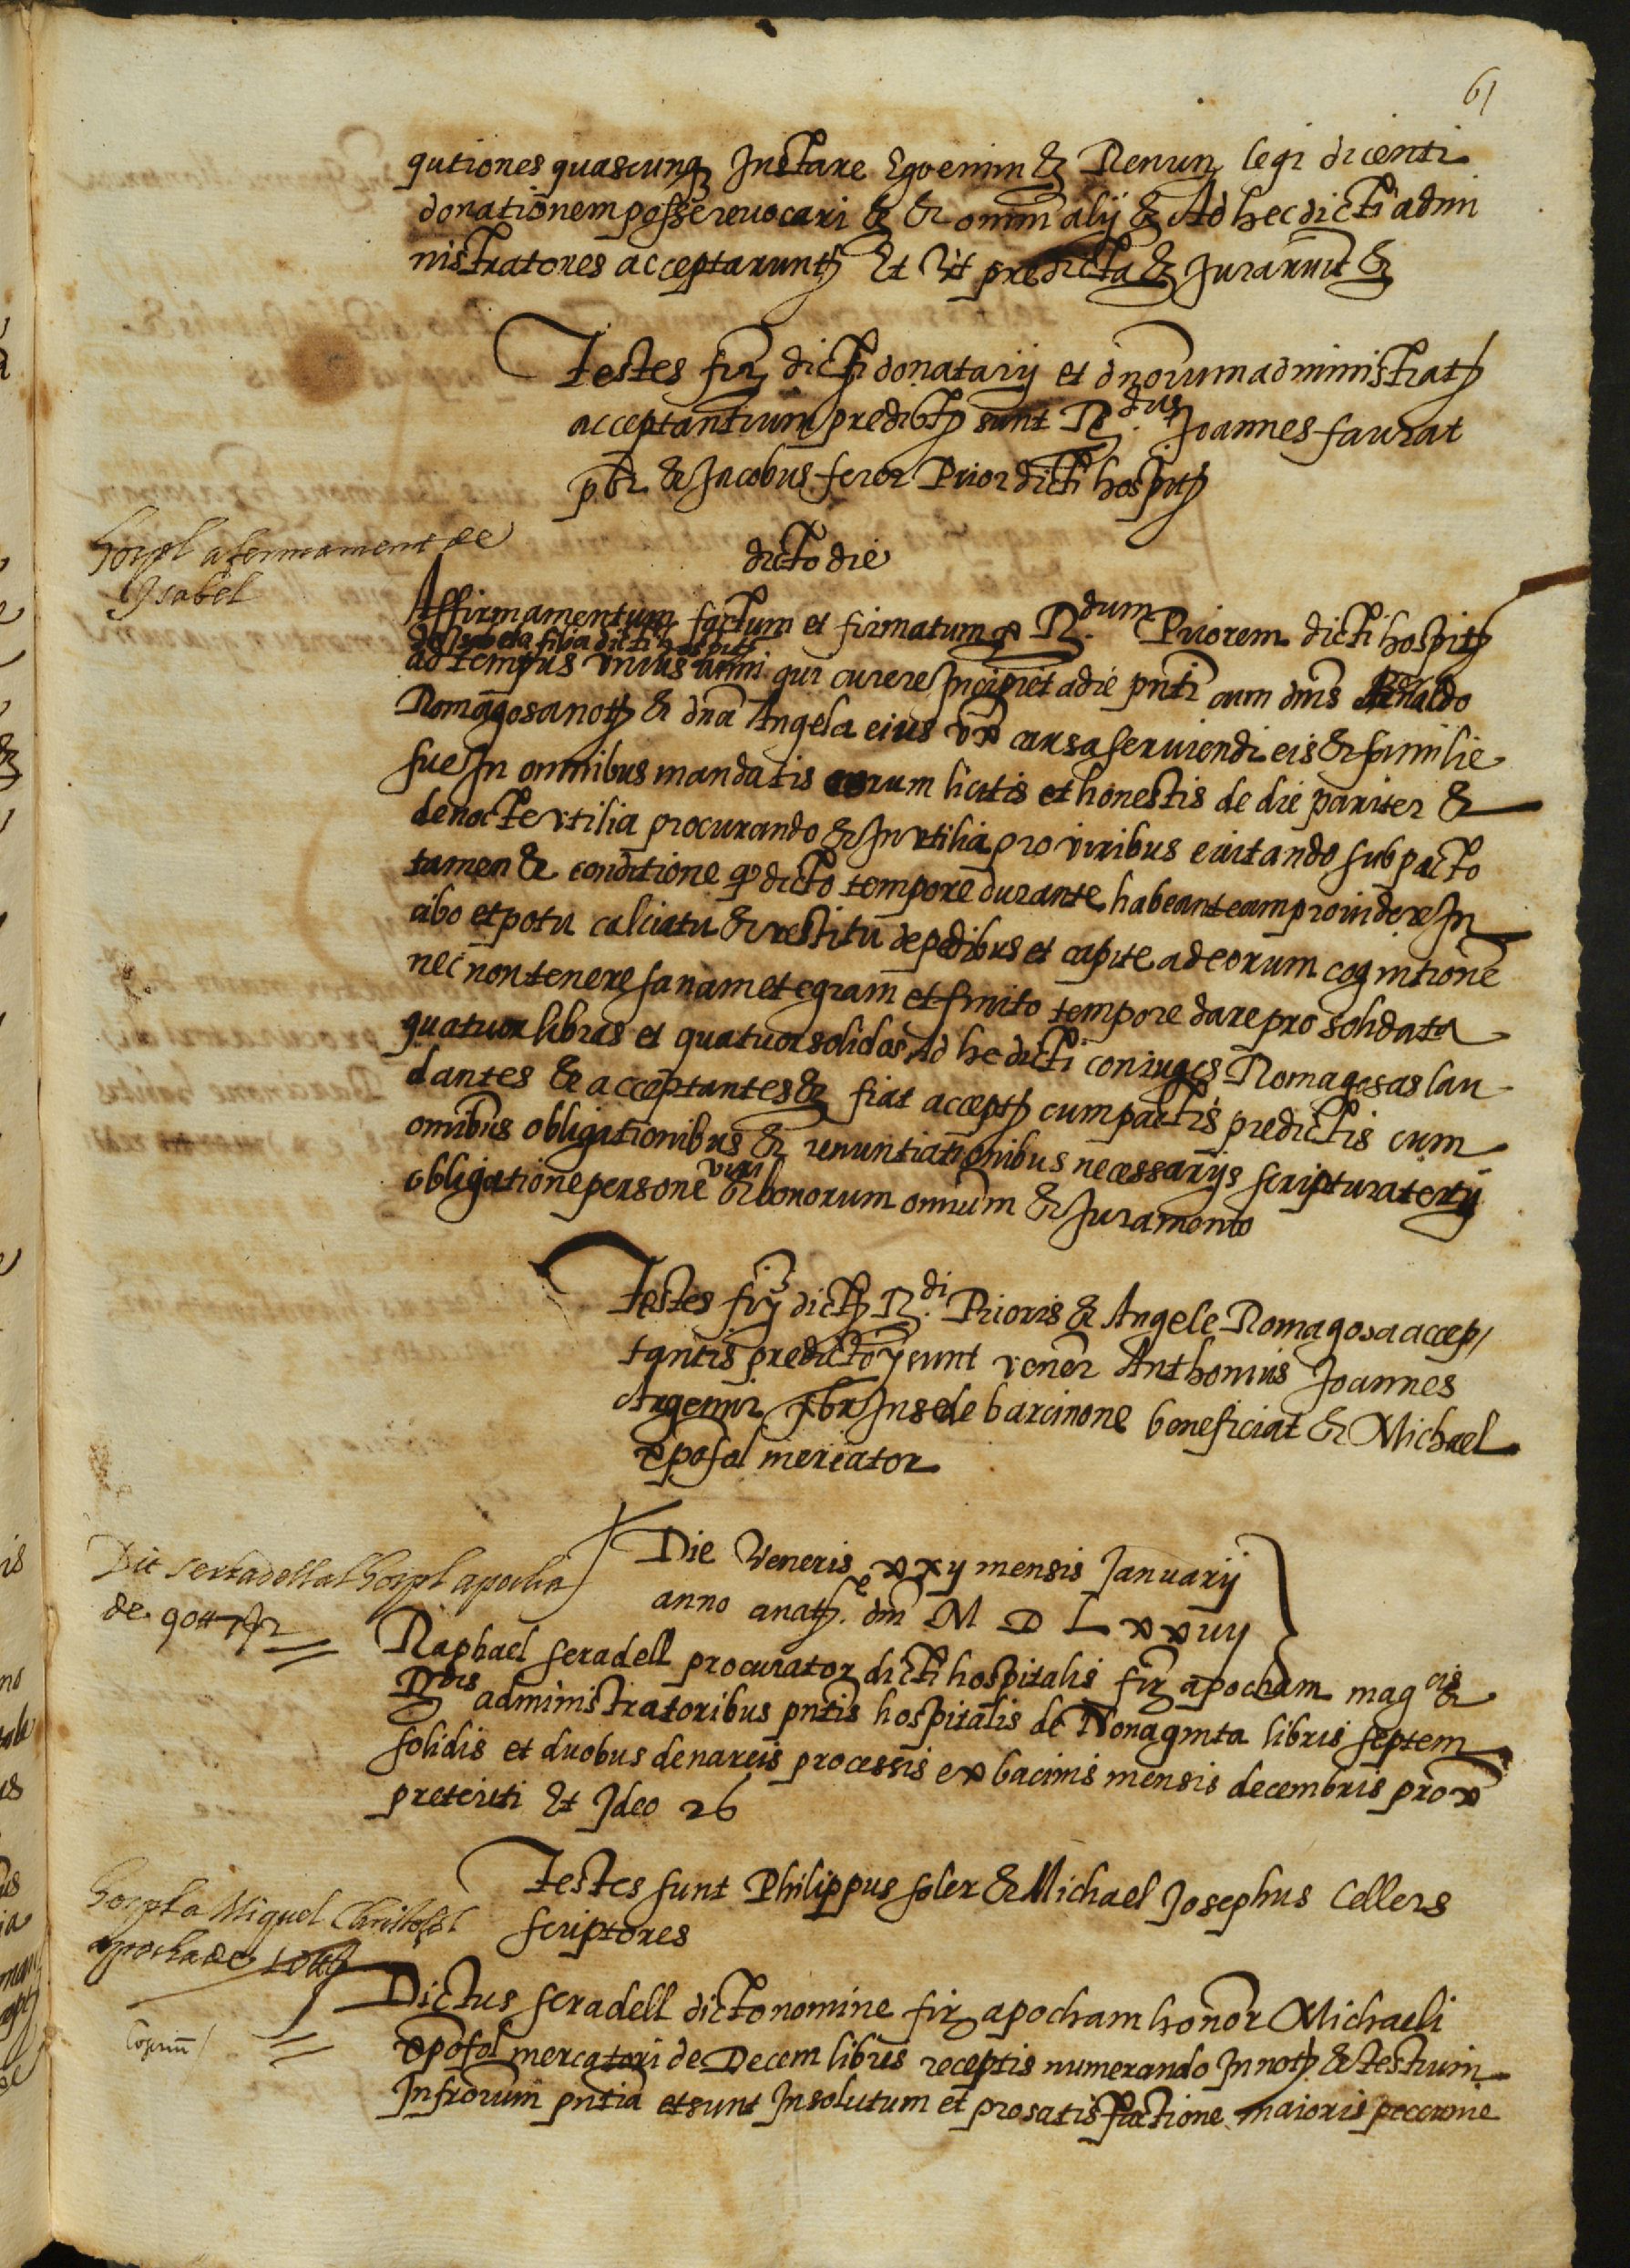 61
qutiones quascunq Instare Ego enim & Renun legi dicenti
donationem posse reuocari & & omni alij & Ad hec dicti admi
nistratores acceptarunt Et Ut predicta & Jurarunt &
Testes fir dicti donatarij et dnorum administrat
acceptantium predict sunt R.dus Joannes faurat
pbr & Jacobus ferer Prior dicti hospit
Hospl afermament de
Isabel
dicto die
Affirmamentum factum et firmatum p R.dum Priorem dicti hospit
de Isabela filia dicti hospit
ad tempus unius anni qui curere Incipiet a die pnti cum dnis Renaldo
Romagosa not & dna Angela eius ux causa seruiendi eis & familie
sue In omnibus mandatis eorum licitis et honestis de die pariter &
de nocte vtilia procurando & Invtilia pro viribus euitando sub pacto
tamen & conditione q dicto tempore durante habeant eam prouidere In
cibo et potu calciatu & vestitu de pedibus et capite ad eorum cognitione
nec non tenere sanam et egram et finito tempore dare pro solidata
quatuor libras et quatuor solidos Ad hec dicti coniuges Romagosas lau
dantes & acceptantes & fiat accept cum pactis predictis cum
omibus obligationibus & renuntiationibus necessarijs scriptura tertij
obligatione persone viri & bonorum omnium & Juramento
Testes fir dict R.di Prioris & Angele Romagosa accep
tantis predictor sunt vener Anthonius Joannes
Argemir pbr In sede barcinone beneficiat & Michael
xpofol mercator
Die Veneris xxij mensis Januarij
anno a nat dni M D L xx uij
Dit serradell al hospl apocha
de 90 ll 7 s 2
Raphael seradell procurator dicti hospitalis fir apocham mag cis &
R dis administratoribus pntis hospitalis de Nonaginta libris septem
solidis et duobus denareis processis ex bacinis mensis decembris prox
preteriti Et Ideo 26
Testes sunt Philippus soler & Michael Josephus Cellers
scriptores
Hospl a Miquel Christofol
apocha de 10 ll
Dictus seradell dicto nomine fir apocham honor Michaeli
xpofol mercatori de Decem libris receptis numerando In not & testium
Infrorum pntia et sunt In solutum et pro satisfactione maioris peccunie